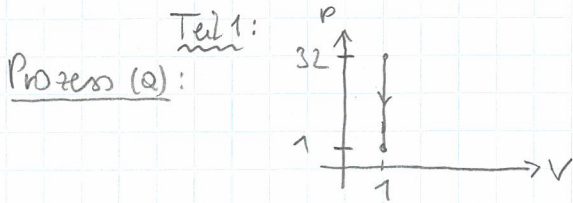 Teil 1:
Prozess (Q):
P
32
1
1
V